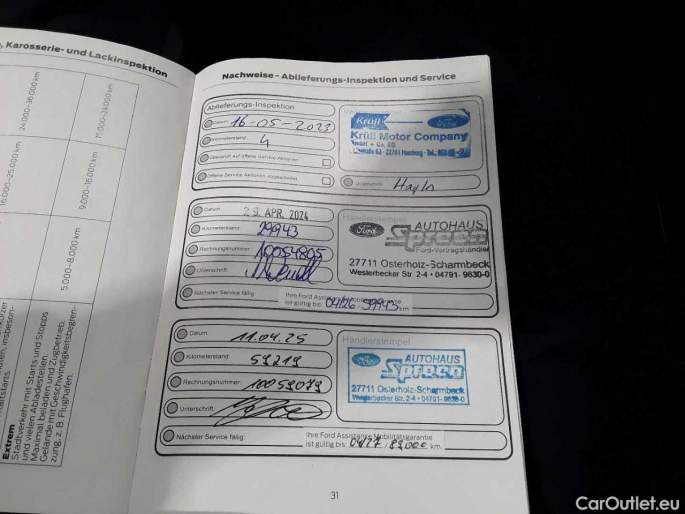 , Karosserie- und Lackinspektion
24.000–36.000 km
11.000–24.000 km
16.000–25.000 km
9.000–16.000 km
5.000–8.000 km
Extrem
Stadtverkehr mit Starts und Stopps
und vielen Abladestellen.
Maximal beladen und Zugbetrieb.
Gelände mit Geschwindigkeitsbegren-
zung, z. B. Flughäfen.
Nachweise – Ablieferungs-Inspektion und Service
Ablieferungs-Inspektion
Datum: 16-05-2023
Kilometerstand: 4
Überprüft auf offene Service Aktionen
Offene Service Aktionen
Krüll Ford
Krüll Motor Company
GmbH + Co. KG
22761 Hamburg · Tel.
Unterschrift:
Datum: 29. APR. 2024
Kilometerstand: 29943
Rechnungsnummer: 10054805
Unterschrift:
Nächster Service fällig:
Ihre Ford Assistance Mobilitätsgarantie
ist gültig bis: 04/26 / 59943 km
Händlerstempel
Ford AUTOHAUS
Spreen
Ford-Vertragshändler
27711 Osterholz-Scharmbeck
Westerbecker Str. 2-4 • 04791- 9630-0
Datum: 11.04.25
Kilometerstand: 59219
Rechnungsnummer: 10059079
Unterschrift:
Nächster Service fällig:
Ihre Ford Assistance Mobilitätsgarantie
ist gültig bis: 04/27 / 89.000 km
Händlerstempel
Ford AUTOHAUS
Spreen
27711 Osterholz-Scharmbeck
Westerbecker Str. 2-4 • 04791- 9630-0
31
CarOutlet.eu